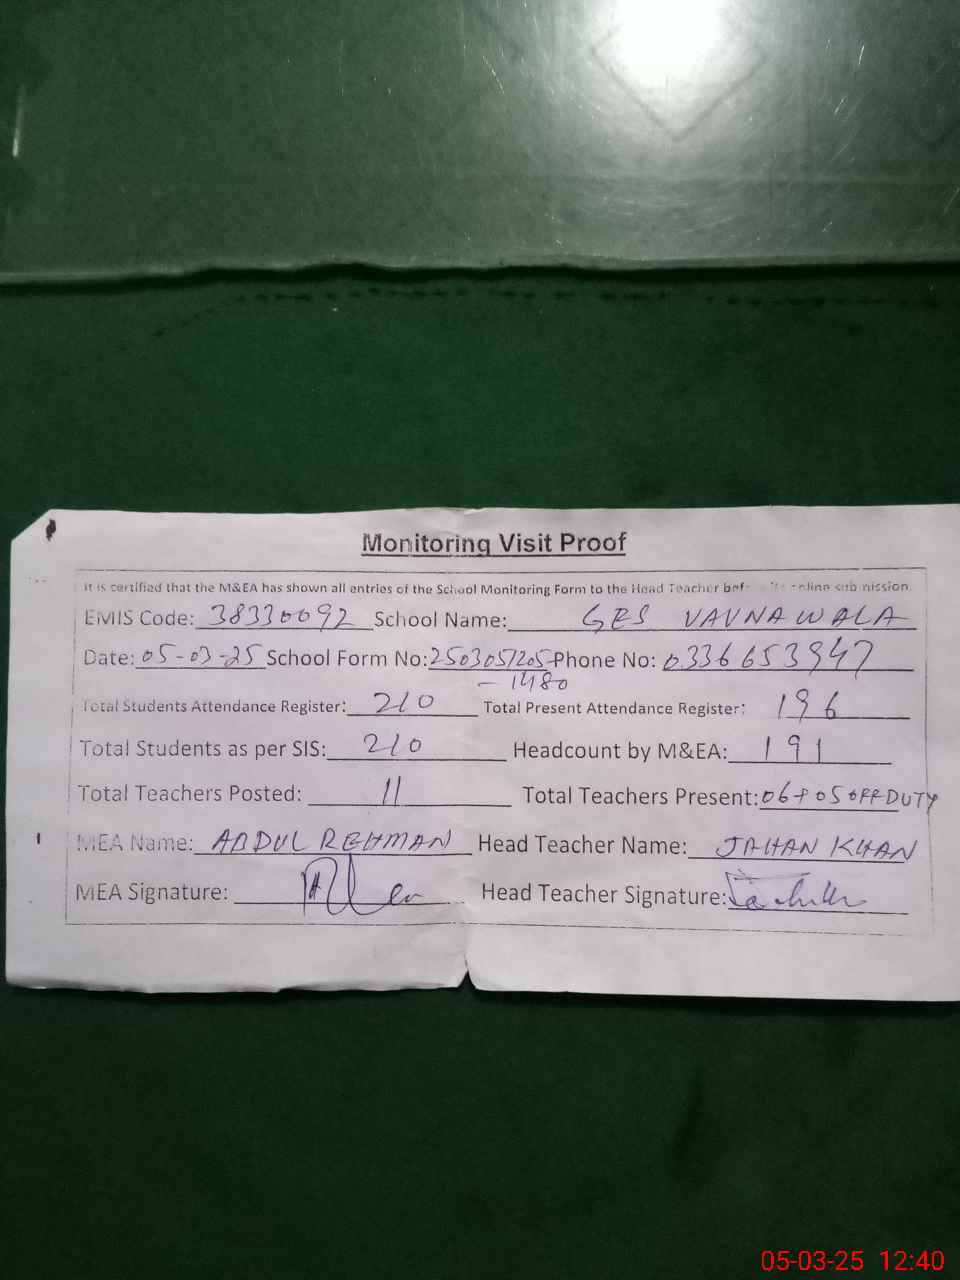 Monitoring Visit Proof
It is certified that the M&EA has shown all entries of the School Monitoring Form to the Head Teacher before its online submission.
EMIS Code: 38330092 School Name: GES VAVNAWALA
Date: 05-03-25 School Form No: 2503051205 Phone No: 0336653947
-1480
Total Students Attendance Register: 210 Total Present Attendance Register: 196
Total Students as per SIS: 210 Headcount by M&EA: 191
Total Teachers Posted: 11 Total Teachers Present: 06+05 OFF DUTY
MEA Name: ABDUL REHMAN Head Teacher Name: JAHAN KHAN
MEA Signature: Head Teacher Signature:
05-03-25 12:40